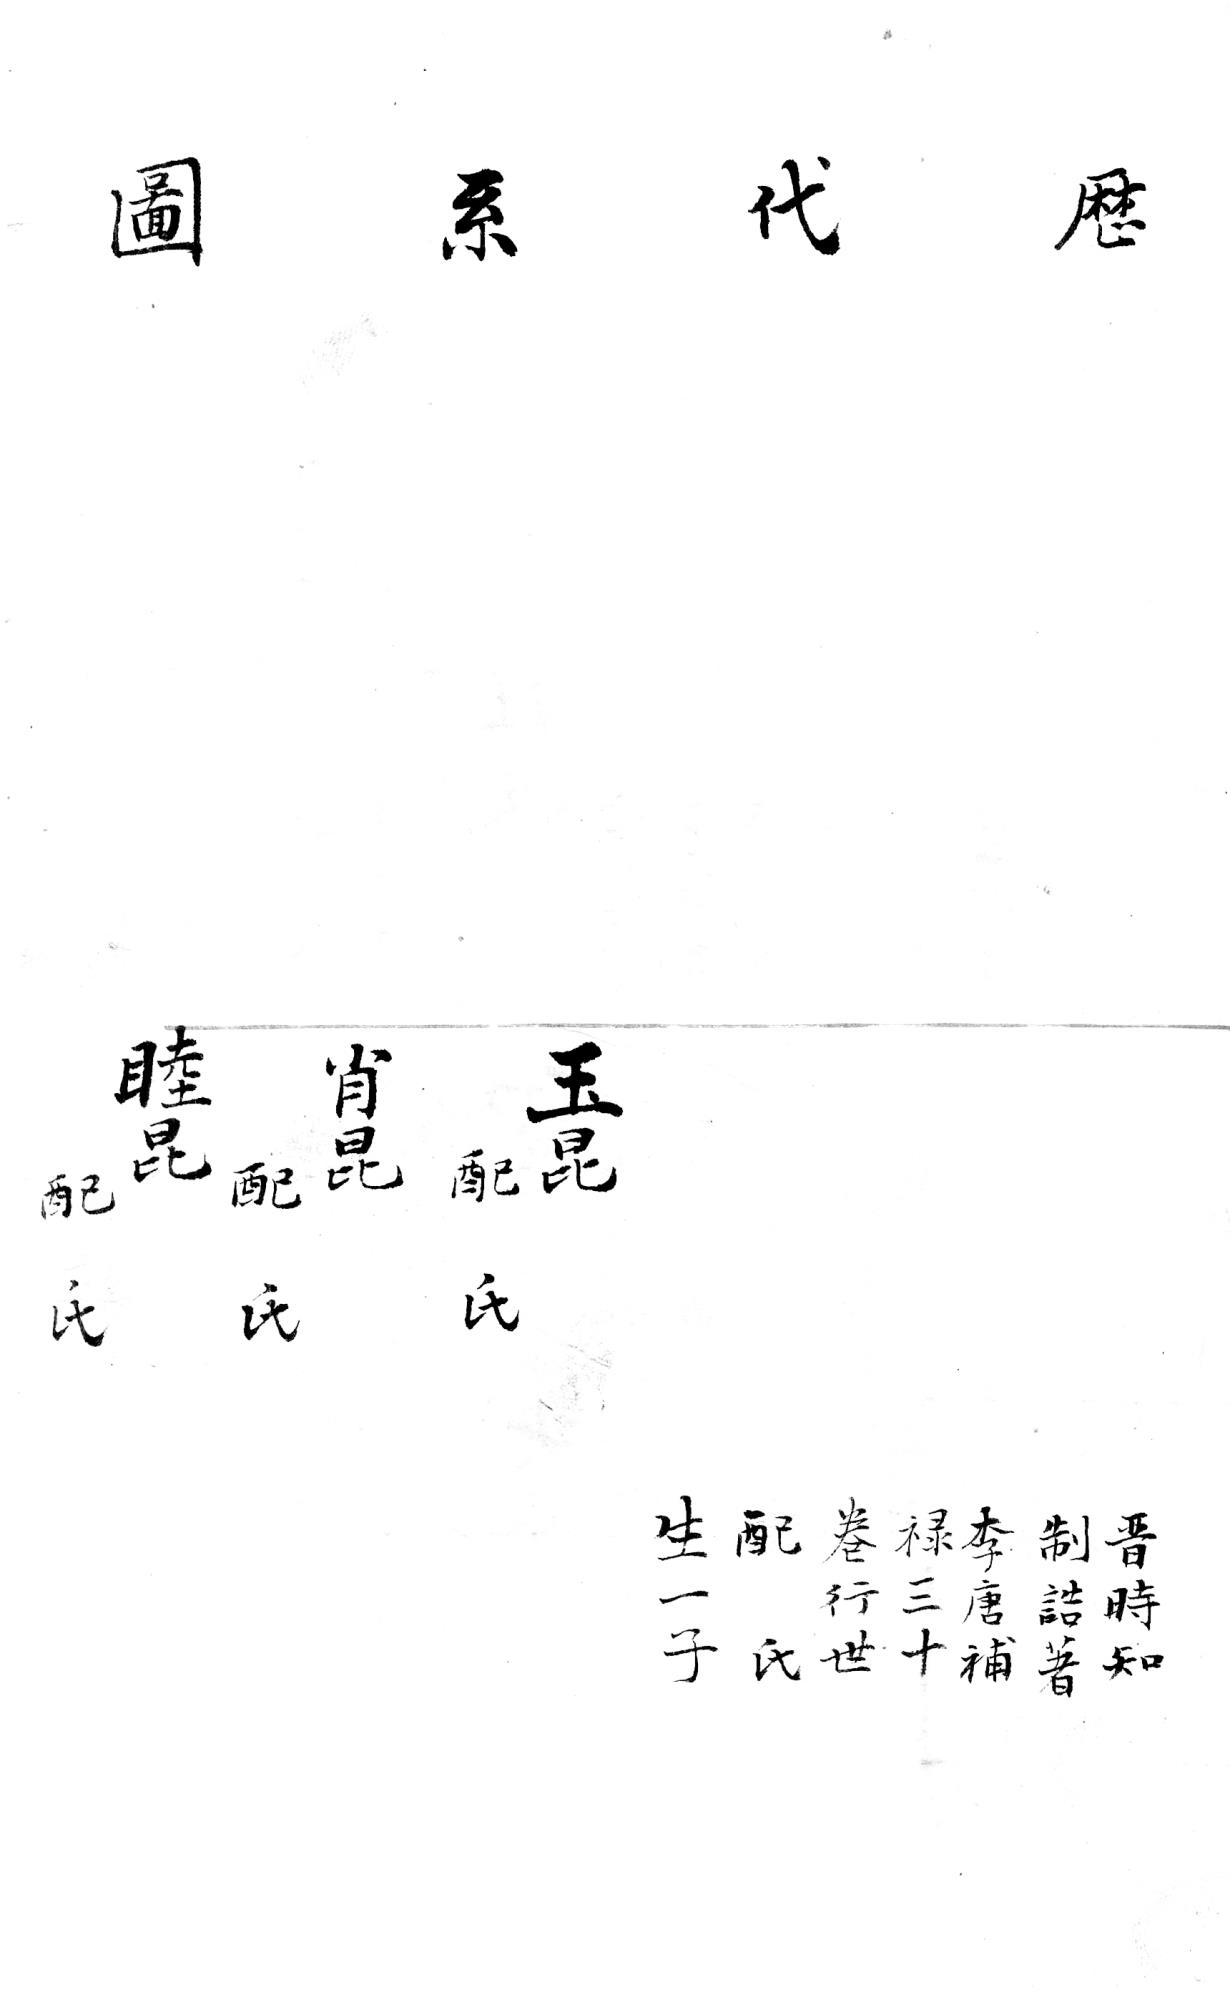 歷代系圖
晋時知
制誥著
李唐補
禄三十
卷行世
配 氏
生一子
玉昆
配 氏
肖昆
配 氏
睦昆
配 氏